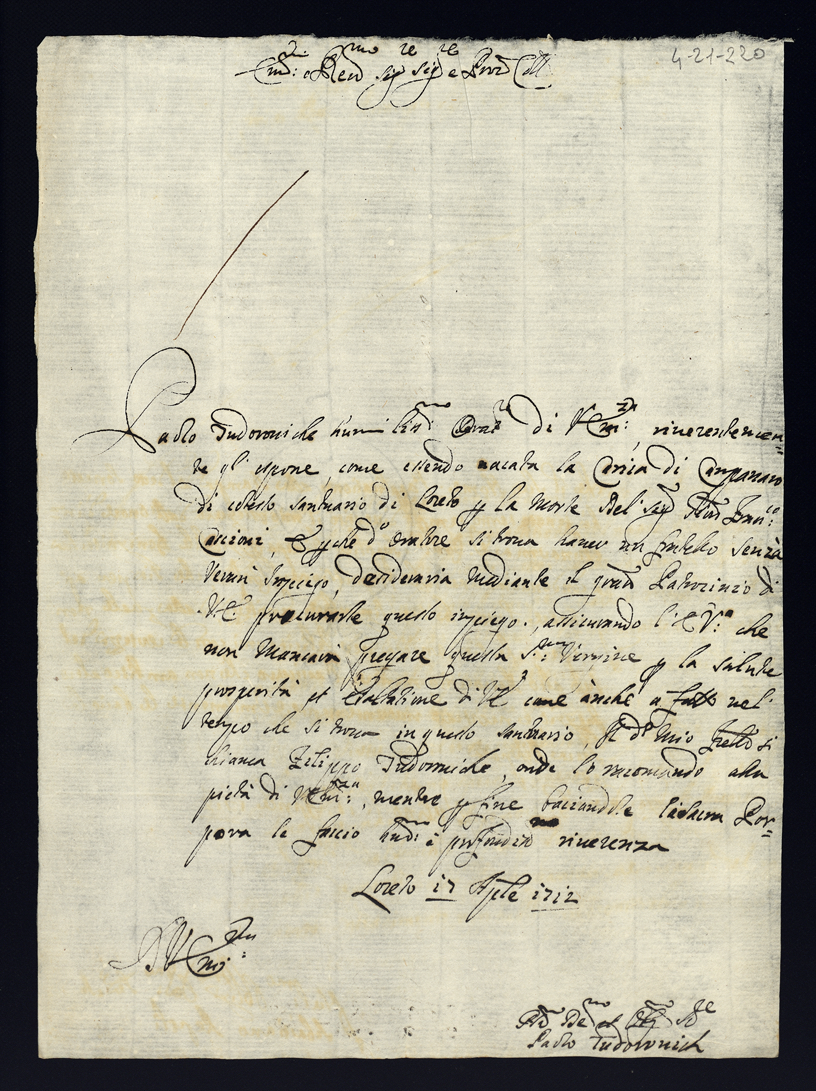 4-21-220
Em: e Reu Sig Sig e Pron Coll
Paolo Tudoroviche humiliss: Orat di V Em:, riuerentemen=
te gl'espone, come essendo uacata la Carica di Campanaro
di cotesto santuario di Loreto p la morte del Sig Fran:co
Cascioni, e pche d:o oratore si troua hauer un fratello senza
uerun Impiego, desideraria mediante il gran Patrocinio di
V.E. procurarle questo impiego, assicurando l'E.V:a che
non mancarà pregare questa S:ma Vergine p la salute
prosperità et esaltatione di V.E. come anche a fatto nel
tempo che si troua in questo santuario, Il d:o mio frello si
chiama Filippo Tudorouiche, onde lo racomando alla
pietà di V Em:za, mentre p fine bacciandole la sacra Por=
pora le faccio hum:ma e profondis riuerenza
Loreto 17 Aple 1712
D V Em:
Hu De et Ob Se
Paolo Tudorouich